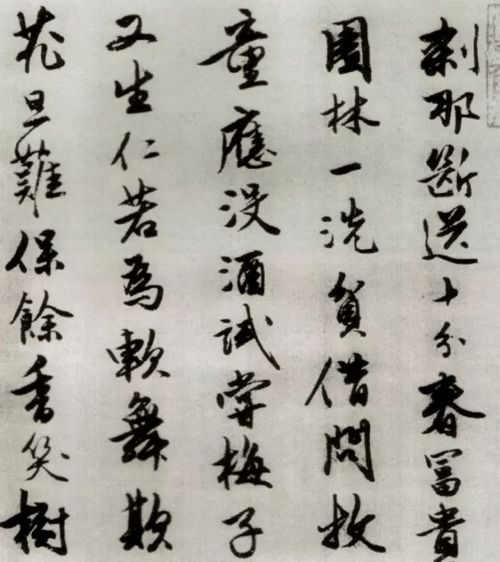 刹那斷送十分春富貴
園林一洗貧借問牧
童應沒酒試嘗梅子
又生仁若為軟舞欺
花旦難保餘香笑樹